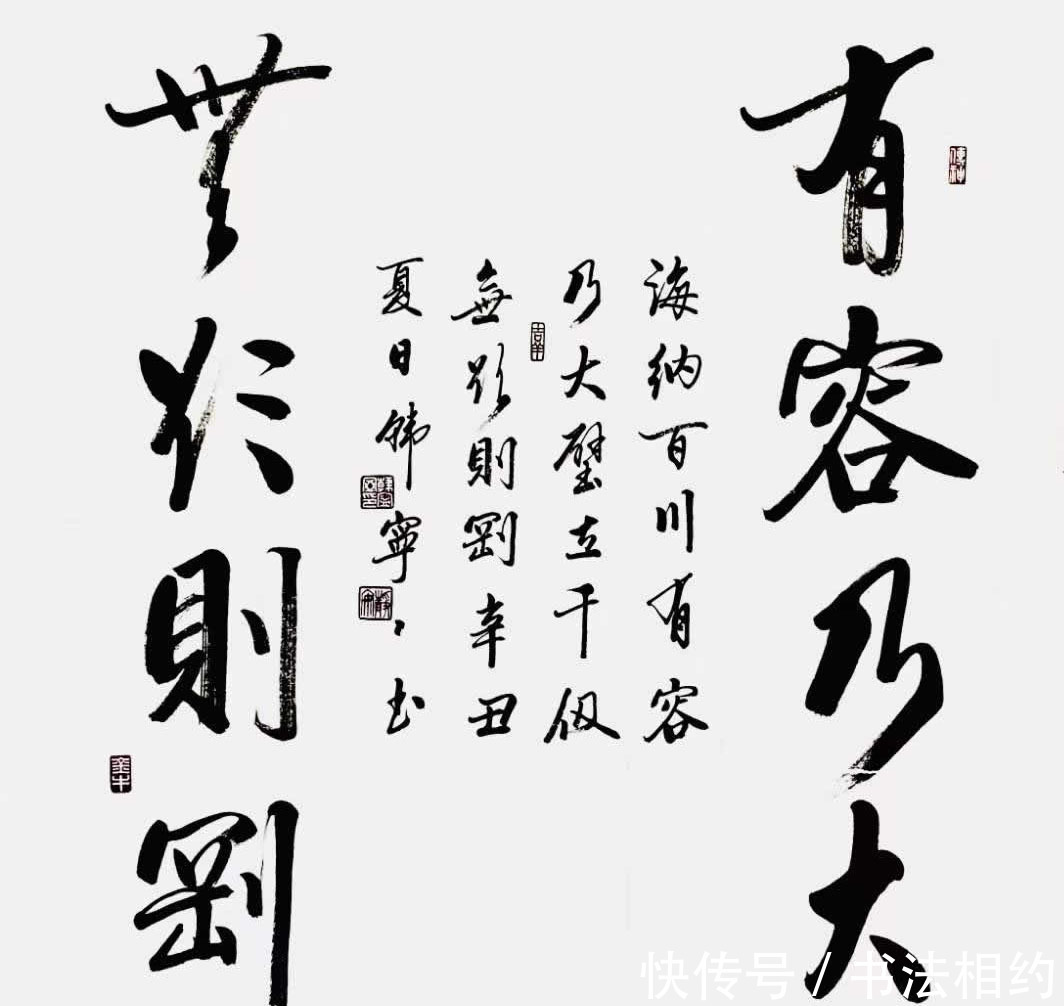 有容乃大
海纳百川有容
乃大壁立千仞
無欲則剛辛丑
夏日韩寧〻书
無欲則剛
吉羊
金牛
快传号 / 书法相约